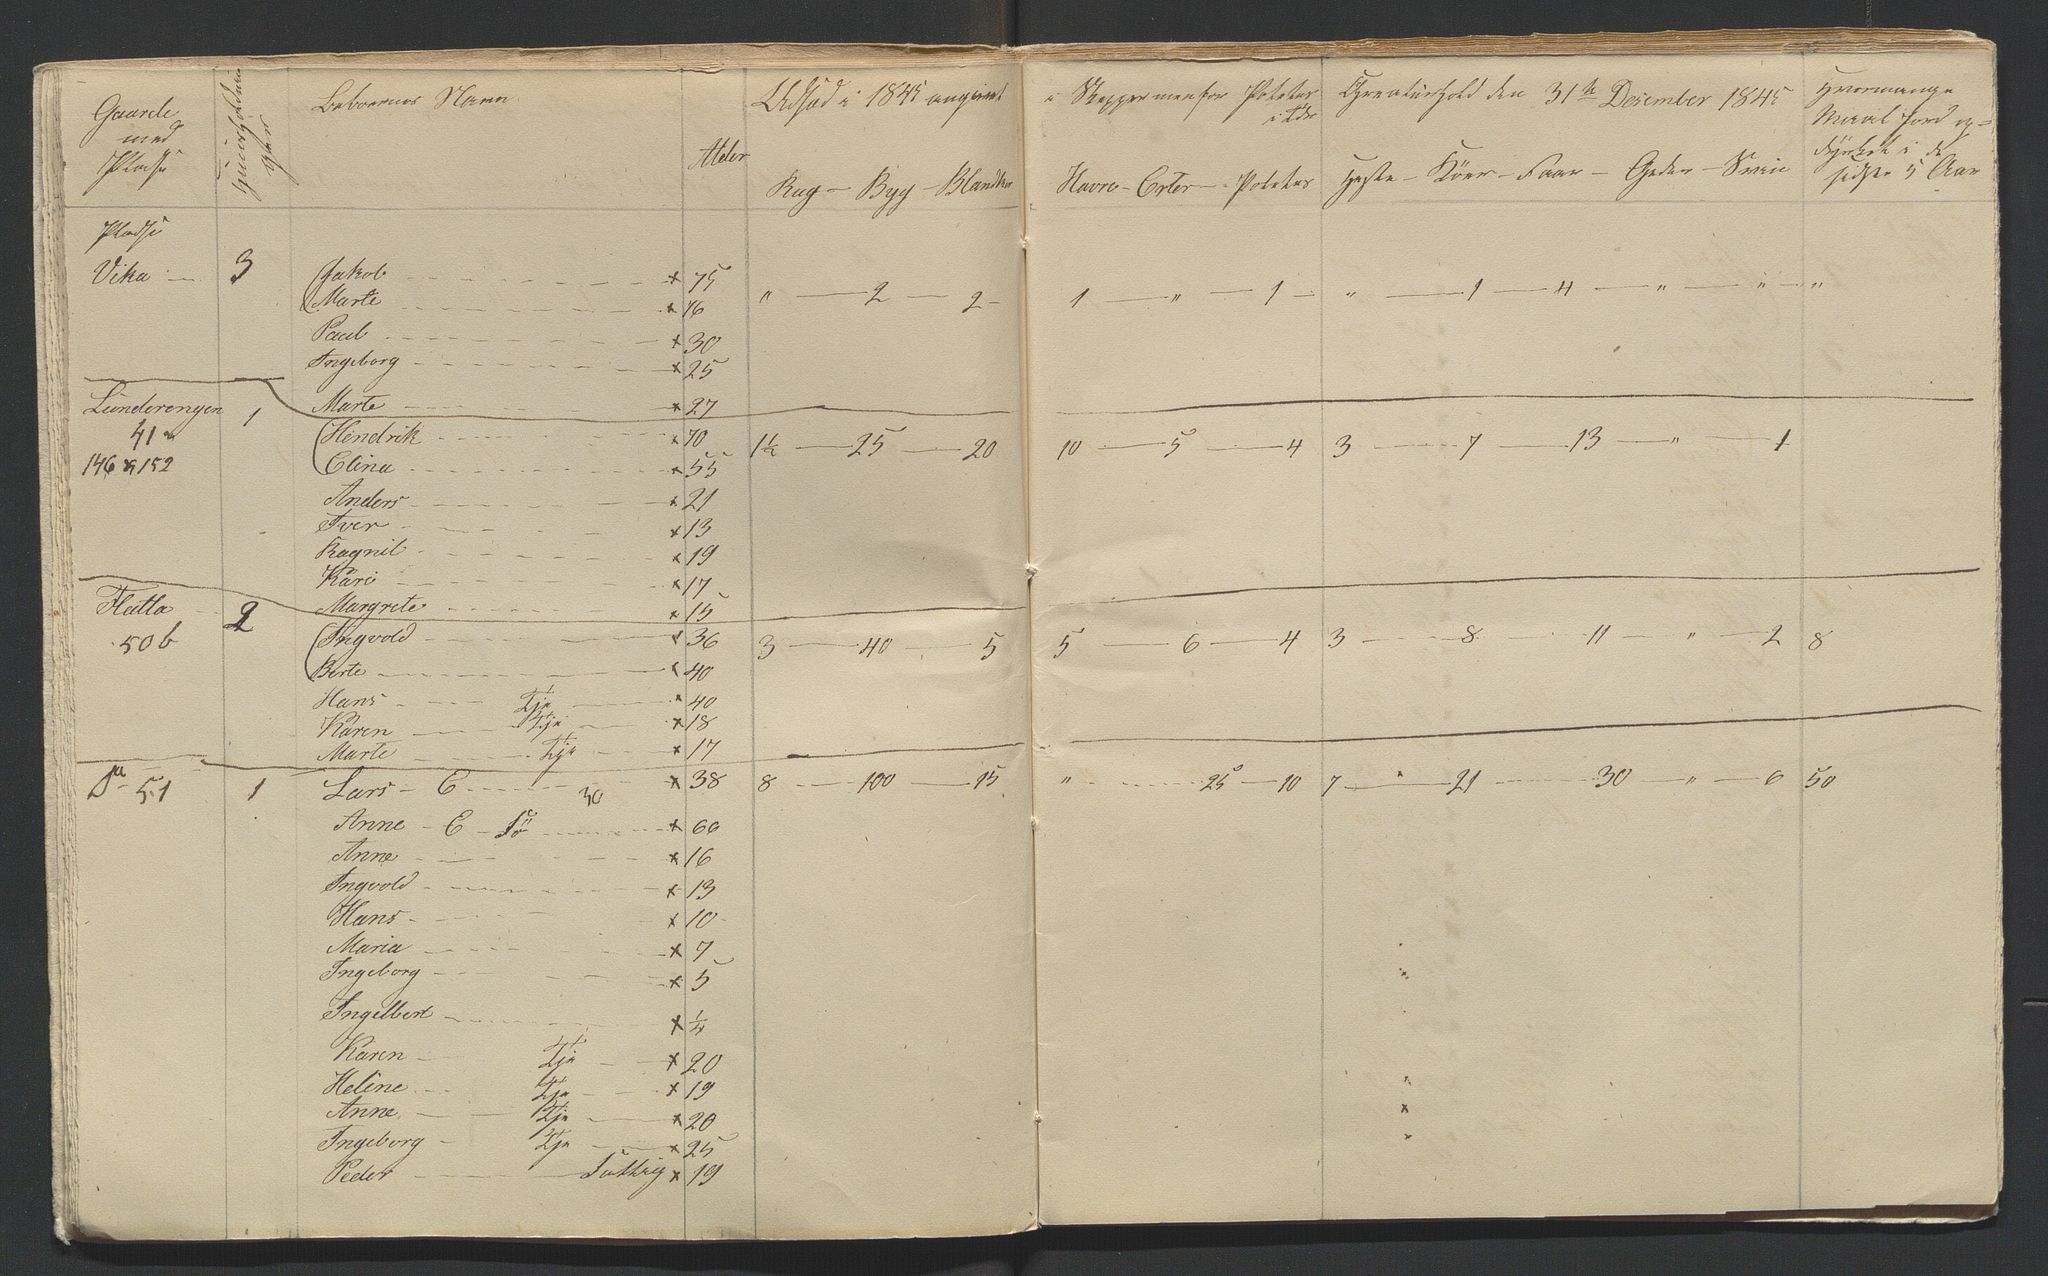 Gaarde med Pladse
Huusholdninger
Beboernes Navn
Alder
Udsæd i 1845 angivet
Rug – Byg – Blandkorn
i Skjepper men for Poteter i Tdr
Havre – Erter – Poteter
Creaturhold den 31te Desember 1845
Heste – Köer – Faar – Geder – Sviin
Hvormange Maal Jord opdyrket i de sidste 5 Aar
Pladse
Vika 3 Jakob x 75 " 2 2 1 " 1 " 1 4 " " "
Marte x 76
Paul x 30
Ingeborg x 25
Marte x 27
Lunderengen 1
41a Hendrik x 70 1½ 25 20 10 5 4 3 7 13 " 1
146 & 152 Elina x 55
Anders x 21
Iver x 13
Ragnil x 19
Kari x 17
Margrete x 15
Flatla 2
50b Ingvold x 36 3 40 5 5 6 4 3 8 11 " 2 8
Berte x 40
Hans Tje x 40
Karen Tje x 18
Marte Tje x 17
Do 51 1 Lars – E 30 x 38 8 100 15 " 25 10 7 21 30 " 6 50
Anne – E – Fö x 66
Anne x 16
Ingvold x 13
Hans x 10
Maria x 7
Ingeborg x 5
Ingelbert x ¼
Karen Tje x 20
Heline Tje x 19
Anne Tje x 20
Ingeborg Tje x 25
Peder Fattig x 19